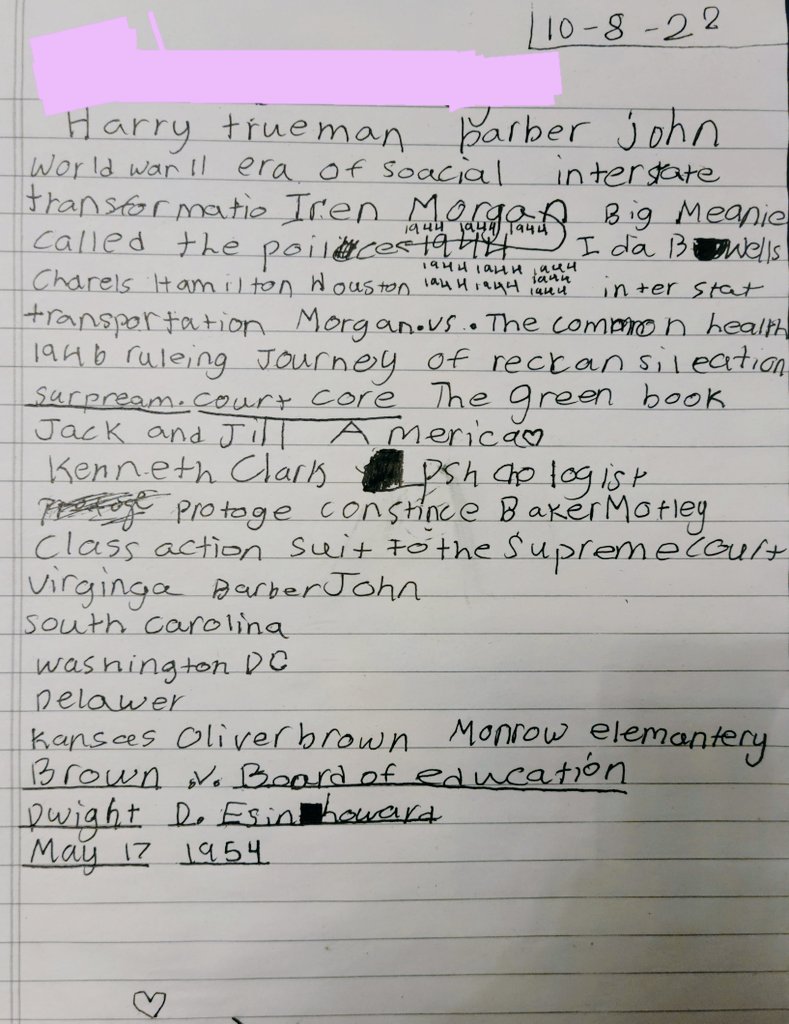 10-8-22
Harry trueman barber john
World war II era of soacial interstate
transformatio Iren Morgan Big Meanie
1944 1944 1944
called the poilces 1944 Ida B wells
1944 1944 1944
Charels Hamilton Houston 1944 1944 1944 1944 inter stat
transportation Morgan.vs.. The common health
1946 ruleing Journey of reckansileation
surpream. court core The green book
Jack and Jill America♡
Kenneth Clark pshcologist
protoge constince Baker Motley
Class action suit to the Supreme court
virginga Barber John
south carolina
washington DC
Delawer
Kansas Oliver brown Monrow elemantery
Brown .v. Board of education
Dwight D. Esinhoward
May 17 1954
♡